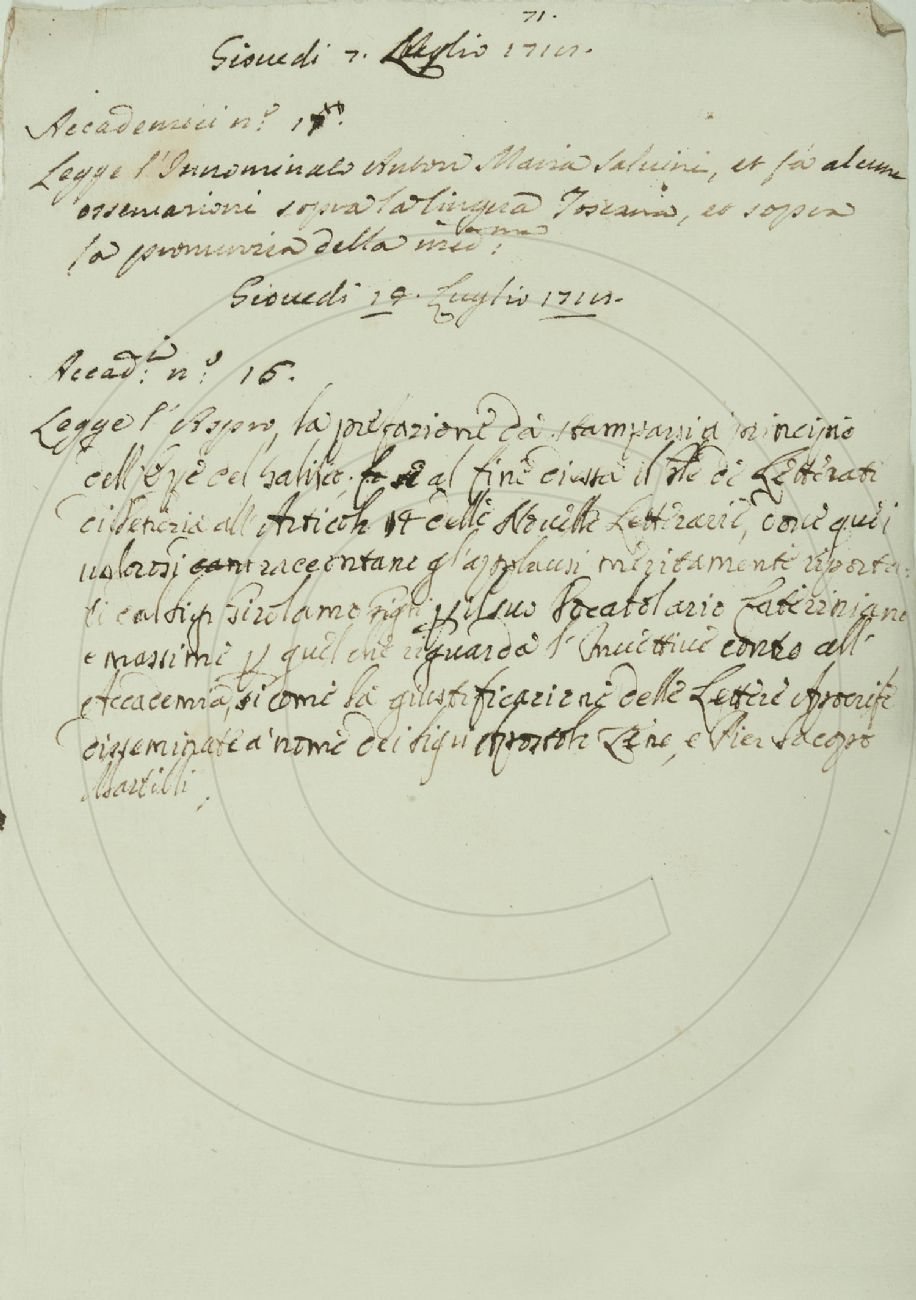 71.
Giovedi 7. Luglio 1718.
Accademici n.° 17.
Legge l'Innominato Anton Maria Salvini, et fà alcune
osservazioni sopra la lingua Toscana, et sopra
la pronunzia della med.ma
Giovedi Luglio 1718.
Accad.i n.° 16.
Legge l'Aspro, la prefazione da stamparsi a principio
dell' del Galileo, al fine di Letterati
di Venezia all'Articolo 14 delle Novelle Letterarie, dove quei
valorosi raccontano gl'applausi meritamente riporta-
ti dal Sig.r Girolamo Gigli p il suo Vocabolario Cateriniano
e massime p quel che riguarda l'Invettive contro all'
Accademia, si come la giustificazione delle Lettere Apocrife
disseminate à nome dei Sig.ri Apostolo Zeno, e Pier Iacopo
Martelli.